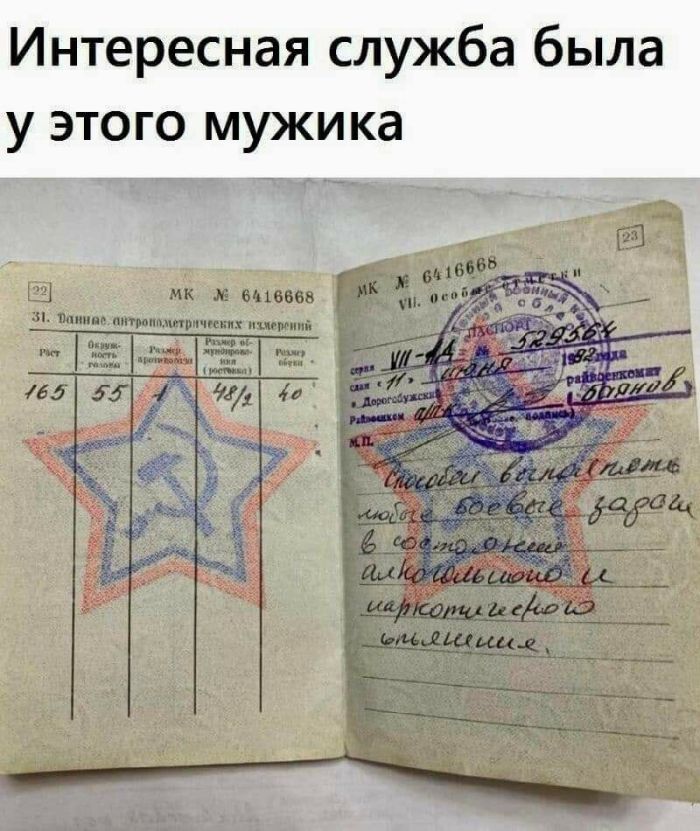 Интересная служба была
у этого мужика
22
МК № 6416668
31. Данные антропометрических измерений
Рост
Окруж-
ность
головы
Размер
противогаза
Размер об-
мундирова-
ния
(ростовка)
Размер
обуви
165 55 1 48/2 40
23
МК № 6416668
VII. Особые отметки
ПАСПОРТ
серия VII-
№ 529564
"11" июня 1992 года
Дорогобужский райвоенкомат
Райвоенком
М.П.
Способен выполнять
любые боевые задачи
в состоянии
алкогольного и
наркотического
опьянения.